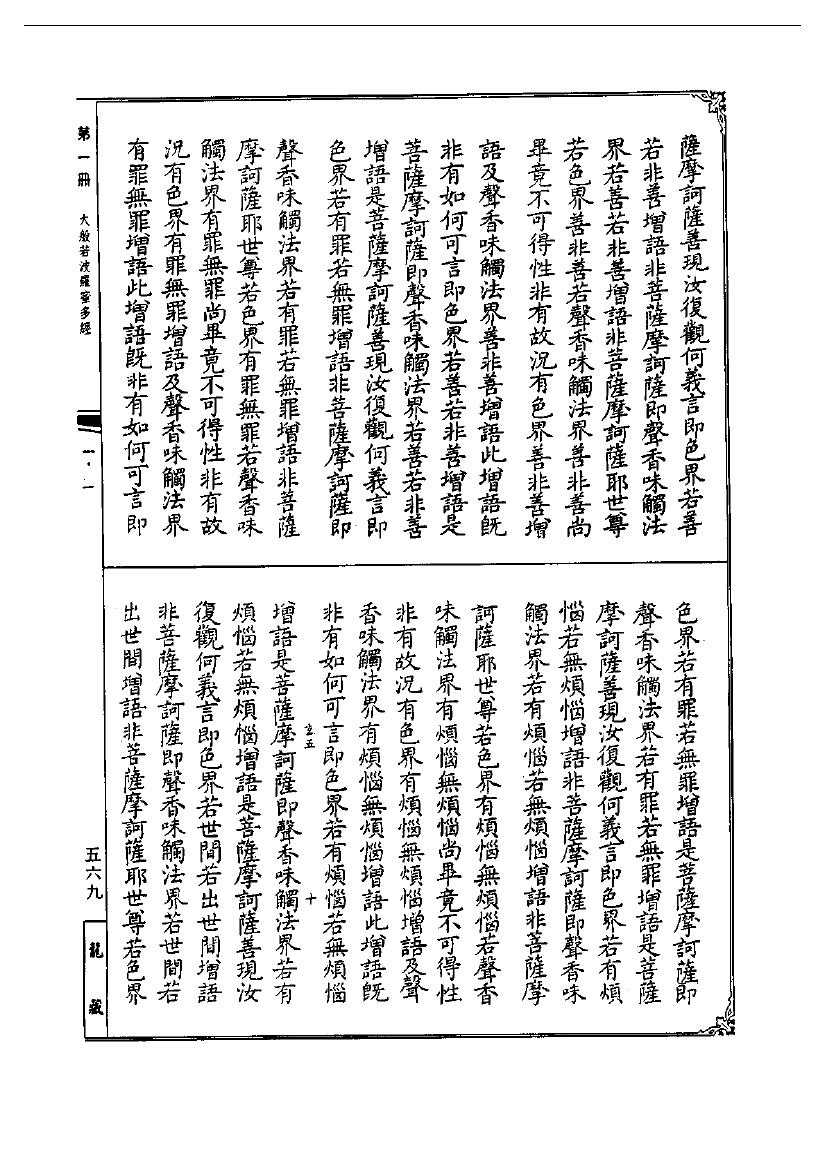 薩摩訶薩善現汝復觀何義言即色界若善
若非善增語非菩薩摩訶薩即聲香味觸法
界若善若非善增語非菩薩摩訶薩耶世尊
若色界善非善若聲香味觸法界善非善尚
畢竟不可得性非有故況有色界善非善增
語及聲香味觸法界善非善增語此增語旣
非有如何可言即色界若善若非善增語是
菩薩摩訶薩即聲香味觸法界若善若非善
增語是菩薩摩訶薩善現汝復觀何義言即
色界若有罪若無罪增語非菩薩摩訶薩即
聲香味觸法界若有罪若無罪增語非菩薩
摩訶薩耶世尊若色界有罪無罪若聲香味
觸法界有罪無罪尚畢竟不可得性非有故
況有色界有罪無罪增語及聲香味觸法界
有罪無罪增語此增語旣非有如何可言即
色界若有罪若無罪增語是菩薩摩訶薩即
聲香味觸法界若有罪若無罪增語是菩薩
摩訶薩善現汝復觀何義言即色界若有煩
惱若無煩惱增語非菩薩摩訶薩即聲香味
觸法界若有煩惱若無煩惱增語非菩薩摩
訶薩耶世尊若色界有煩惱無煩惱若聲香
味觸法界有煩惱無煩惱尚畢竟不可得性
非有故況有色界有煩惱無煩惱增語及聲
香味觸法界有煩惱無煩惱增語此增語旣
非有如何可言即色界若有煩惱若無煩惱
玄五 十
增語是菩薩摩訶薩即聲香味觸法界若有
煩惱若無煩惱增語是菩薩摩訶薩善現汝
復觀何義言即色界若世間若出世間增語
非菩薩摩訶薩即聲香味觸法界若世間若
出世間增語非菩薩摩訶薩耶世尊若色界
第一冊 大般若波羅蜜多經
一·一
五六九
龍藏